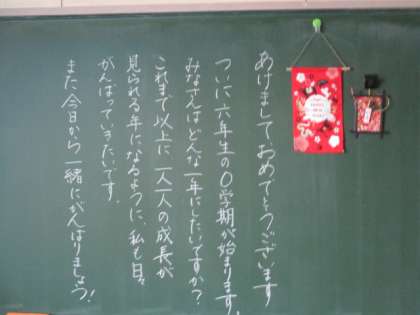 あけまして、おめでとうございます
ついに六年生の0学期が始まります。
みなさんはどんな一年にしたいですか?
これまで以上に一人一人の成長が
見られる年になるように、私も日々
がんばっていきたいです。
また今日から一緒にがんばりましょう!